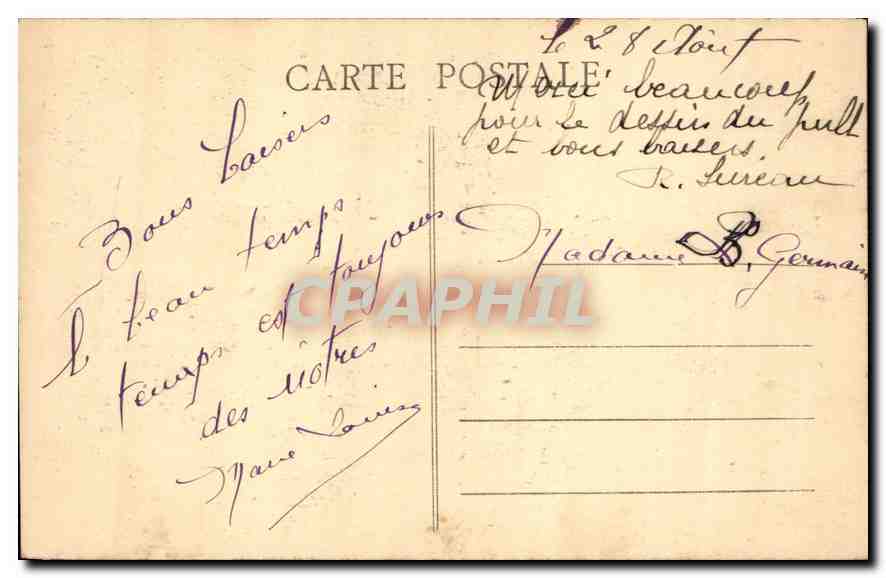 CARTE POSTALE
Bons baisers
le beau temps
temps est toujours
des nôtres
Marie Louise
le 28 Août
Merci beaucoup
pour le dessin du pull
et bons baisers.
R. Sureau
Madame B. Germain
CPAPHIL